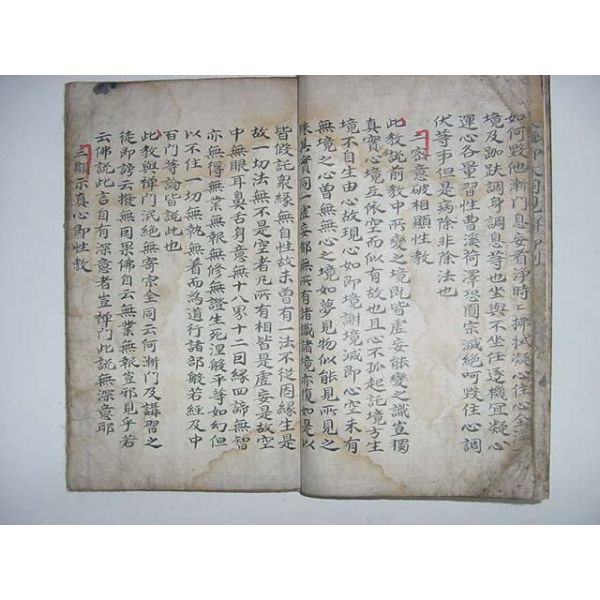 如何毀他漸門息妄看淨時〻拂拭凝心住心
境及跏趺調身調息等也坐與不坐任逢機宜凝心
運心各量習性曹溪荷澤恐圓宗滅絕呵毀住心調
伏等事但是病除非除法也
二密意破相顯性教
此教說前教中所變之境既皆虛妄能變之識豈獨
真實心境互依空而似有故也且心不孤起託境方生
境不自生由心故現心如即境謝境滅即心空未有
無境之心曾無無心之境如夢見物似能見所見之
殊其實同一虛妄都無所有諸識諸境亦復如是以
皆假託衆緣無自性故未曾有一法不從因緣生是
故一切法無不是空者凡所有相皆是虛妄是故空
中無眼耳鼻舌身意無十八界十二因緣四諦無智
亦無得無業無報無修無證生死涅般平等如幻但
以不住一切無執無着而為道行諸部般若經及中
百門等論皆說此也
此教與禪門泯絕無寄宗全同云何漸門及講習之
徒即謗云撥無因果佛自云無業無報豈邪見乎若
云佛說此言自有深意者豈禪門此說無深意耶
三顯示真心即性教